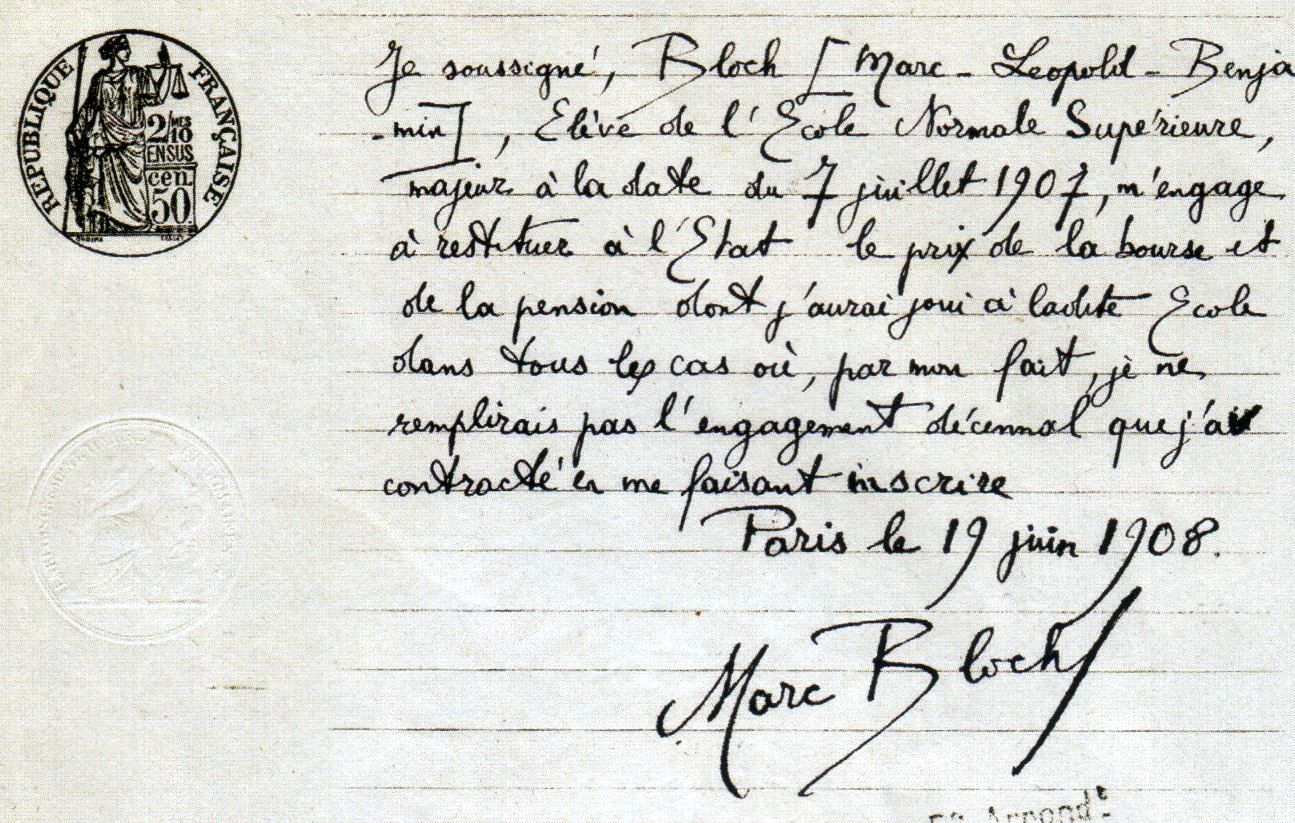 REPUBLIQUE FRANÇAISE
2/MES
10
EN SUS
cen.
50
Je soussigné, Bloch [Marc - Leopold - Benja
-min], Elève de l'Ecole Normale Supérieure,
majeur à la date du 7 juillet 1907, m'engage
à restituer à l'Etat le prix de la bourse et
de la pension dont j'aurai joui à ladite Ecole
dans tous les cas où, par mon fait, je ne
remplirais pas l'engagement décennal que j'ai
contracté en me faisant inscrire
Paris le 19 juin 1908.
Marc Bloch
Arrondt